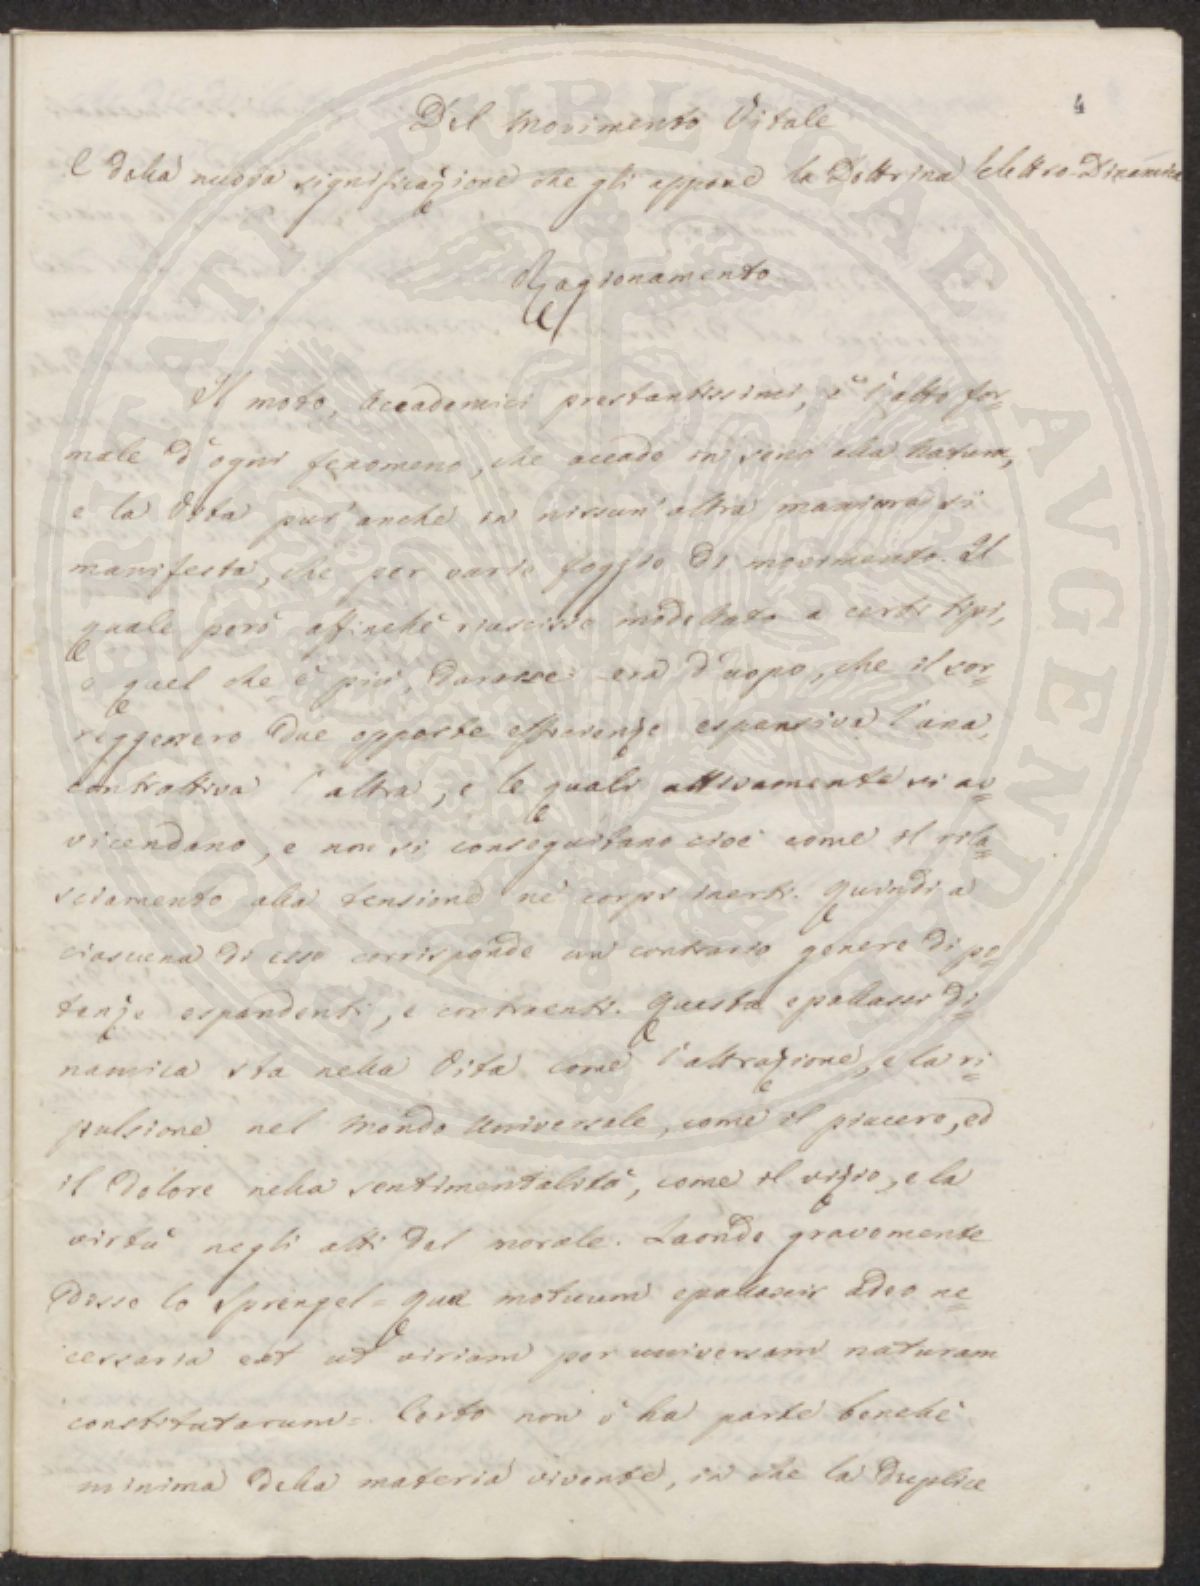 4
Del Movimento Vitale
E della nuova significazione che gli appone la Dottrina Elettro-Dinamica
Ragionamento
Il moto, Accademici prestantissimi, è l'atto for-
male d'ogni fenomeno, che accade in seno alla Natura,
e la Vita pur anche in nissun'altra maniera si
manifesta, che per varie foggie di movimento. Il
quale però affinchè riuscisse modellato a certi tipi,
e quel che è più, durasse era d'uopo, che il sor-
reggessero due opposte efficienze espansiva l'una,
contrattiva l'altra, e le quali attivamente si av-
vicendano, e non si conseguitano cioè come il rila-
sciamento alla tensione ne' corpi inerti. Quindi a
ciascuna di esse corrisponde un contrario genere di po-
tenze espandenti, e contraenti. Questa epallassi di-
namica sta nella Vita come l'attrazione, e la ri-
pulsione nel Mondo Universale, come il piacere, ed
il dolore nella sentimentalità, come il vizio, e la
virtù negli atti del morale. Laonde gravemente
disse lo Sprengel = Quae motuum epallaxis adeo ne-
cessaria est ut virium per universam naturam
constitutarum = Certo non v'ha parte benchè
minima della materia vivente, in che la duplice
VERITATI PVBLICAE AVGENDAE